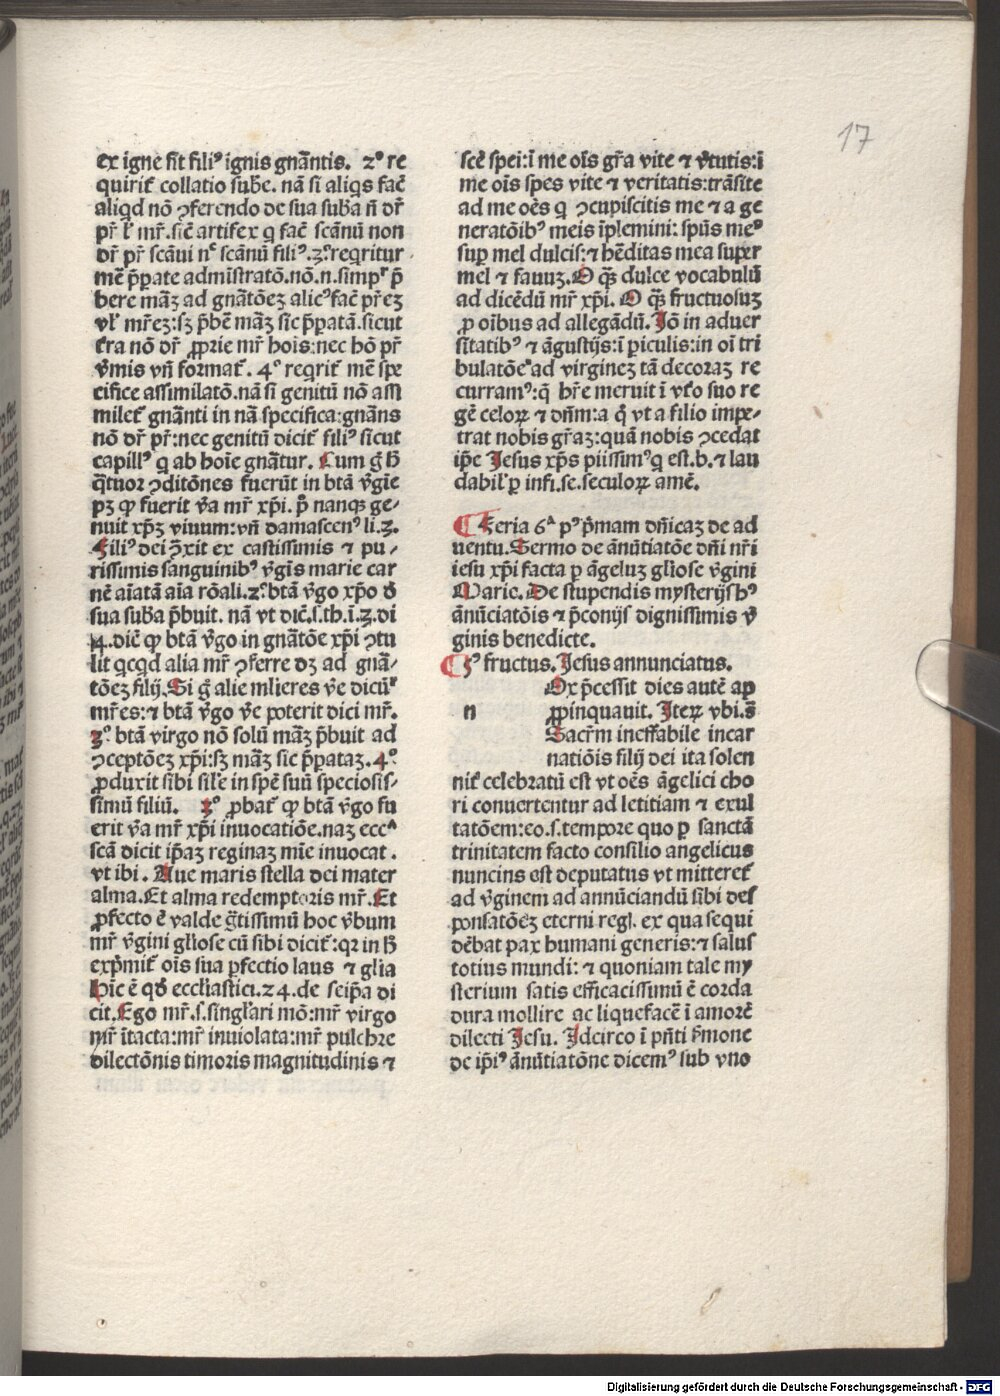 17
ex igne fit filiꝰ ignis gnãntis. 2º re
quirit̃ collatio sub̃e. nã si aliqs fac̃
aliqd nõ ꝯferendo de sua sub̃a ñ dr̃
pr̃ l̃ mr̃.sic̃ artifex q fac̃ scãnũ non
dr̃ pr̃ scãni nᶜ scãnũ filiꝰ.3.ºreqritur
mẽ p̃pate admistratõ.nõ.n.simpʳ p̃
bere mãꝫ ad gnãtõeꝫ alicꝰ fac̃ pr̃eꝫ
vl̃ mr̃eꝫ:sꝫ p̃bẽ mãꝫ sic p̃patã.sicut
t̃ra nõ dr̃ ꝓprie mr̃ hois:nec hõ pr̃
ṽmis vñ format̃. 4º reqrit̃ mẽ spe
cifice assimilatõ.nã si genitũ nõ assi
milet̃ gnãnti in nã specifica:gnãns
nõ dr̃ pr̃:nec genitũ dicit̃ filiꝰ sicut
capillꝰ q ab hoĩe gnãtur. Cum g̃ h̃
q̃tuor ꝯditões fuerũt in btã ṽgĩe
pꝫ ꝙ fuerit ṽa mr̃ xp̃i. p̃ nanqꝫ ge-
nuit xp̃ꝫ viuum:vñ damascenꝰ li.3.
Filiꝰ dei ꝯ̃xit ex castissimis ⁊ pu-
rissimis sanguinibꝰ ṽgĩs marie car
nẽ aĩatã aĩa rõali.2.ºbtã ṽgo xp̃o d̃
sua sub̃a p̃buit. nã vt dic̃.s.th.ĩ.3.di
4.dic̃ ꝙ btã ṽgo in gnãtõe xp̃i ꝯtu
lit qcqd alia mr̃ ꝯferre dꝫ ad gnã-
tõeꝫ filij.Si g̃ alie mlieres ṽe dicũʳ
mr̃es:⁊ btã ṽgo ṽe poterit dici mr̃.
3º btã virgo nõ solũ mãꝫ p̃buit ad
ꝯceptõeꝫ xp̃i:sꝫ mãꝫ sic p̃pataꝫ.4º
ꝓduxit sibi sil̃e in spẽ suũ speciosis-
simũ filiũ. 2º ꝓbat̃ ꝙ btã ṽgo fu
erit ṽa mr̃ xp̃i inuocatiõe.naꝫ eccᵃ
scã dicit ip̃aꝫ reginaꝫ mĩe inuocat.
vt ibi. Aue maris stella dei mater
alma.Et alma redemptoris mr̃.Et
ꝓfecto ẽ valde g̃tissimũ hoc ṽbum
mr̃ ṽgini gl̃iose cũ sibi dicit̃:qꝛ in h̃
exp̃mit̃ oĩs sua ꝑfectio laus ⁊ glĩa
hĩc ẽ qd̃ eccl̃iastici.24.de seip̃a di
cit.Ego mr̃.s.singl̃ari mõ:mr̃ virgo
mr̃ ĩtacta:mr̃ inuiolata:mr̃ pulchre
dilectõnis timoris magnitudinis ⁊
scẽ spei:ĩ me oĩs gr̃a vite ⁊ ṽtutis:ĩ
me oĩs spes vite ⁊ veritatis:trãsite
ad me oẽs q ꝯcupiscitis me ⁊ a ge
neratõibꝰ meis ĩplemini: spũs meꝰ
suꝑ mel dulcis:⁊ hẽditas mea super
mel ⁊ fauuꝫ.O q̃ꝫ dulce vocabulũ
ad dicẽdũ mr̃ xp̃i. O q̃ꝫ fructuosuꝫ
ꝓ oĩbus ad allegãdũ.Iõ in aduer
sitatibꝰ ⁊ ãgustijs:ĩ ꝑiculis:in oĩ tri
bulatõe ad virgineꝫ tã decoraꝫ re
curramꝰ:q̃ hr̃e meruit ĩ vt̃o suo re
gẽ celoꝝ ⁊ dñm:a q̃ vt a filio impe-
trat nobis gr̃aꝫ:quã nobis ꝯcedat
ip̃e Jesus xp̃s piissimꝰ q est.b.⁊ lau
dabil̃ ꝑ infi.se.seculoꝝ amẽ.
Feria 6ᵃ pꝰ p̃mam dñicaꝫ de ad
uentu.Sermo de ãnũtiatõe dñi nr̃i
iesu xp̃i facta ꝑ ãgeluꝫ gl̃iose ṽgini
Marie. De stupendis mysterijs hꝰ
ãnũciatõis ⁊ p̃conijs dignissimis ṽ
ginis benedicte.
5ꝰ fructus. Jesus annunciatus.
n
Ox p̃cessit dies autẽ ap
ꝓpinquauit. Iteꝝ vbi.s̃
Sacr̃m ineffabile incar
natiõis filij dei ita solen
nit̃ celebratũ est vt oẽs ãgelici cho
ri conuertentur ad letitiam ⁊ exul
tatõem:eo.s.tempore quo ꝑ sanctã
trinitatem facto consilio angelicus
nuncius est deputatus vt mitteret̃
ad ṽginem ad annũciandũ sibi des
ponsatõeꝫ eterni reg̃. ex qua sequi
dẽbat pax humani generis:⁊ salus
totius mundi: ⁊ quoniam tale my
sterium satis efficacissimũ ẽ corda
dura mollire ac liquefacẽ ĩ amorẽ
dilecti Jesu. Idcirco ĩ pñti s̃mone
de ip̃iꝰ ãnũtiatõne dicemꝰ sub vno
Digitalisierung gefördert durch die Deutsche Forschungsgemeinschaft - DFG